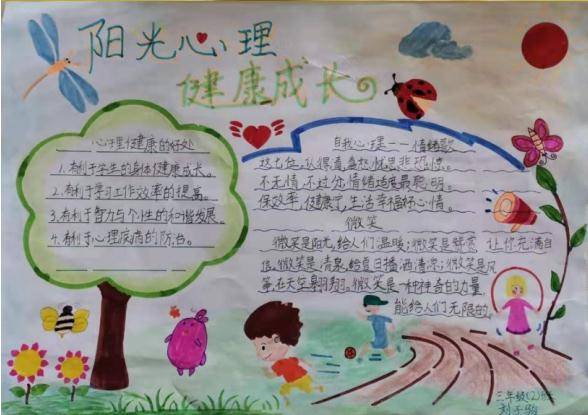 阳光心理
健康成长
心理健康的好处
1.有利于学生的身体健康成长。
2.有利于学习工作效率的提高。
3.有利于智力与个性的和谐发展。
4.有利于心理疾病的防治。
自我心理——情绪歌
不无情,不过分,情绪适度最聪明。
保效率,健康,生活幸福好心情。
微笑
微笑是阳光,给人们温暖;微笑是 让你充满自
信。微笑是清泉,给夏日播洒清凉;微笑是风
筝,在天空翱翔。微笑是一种神奇的力量,
能给人们无限的。
三年级(2)班